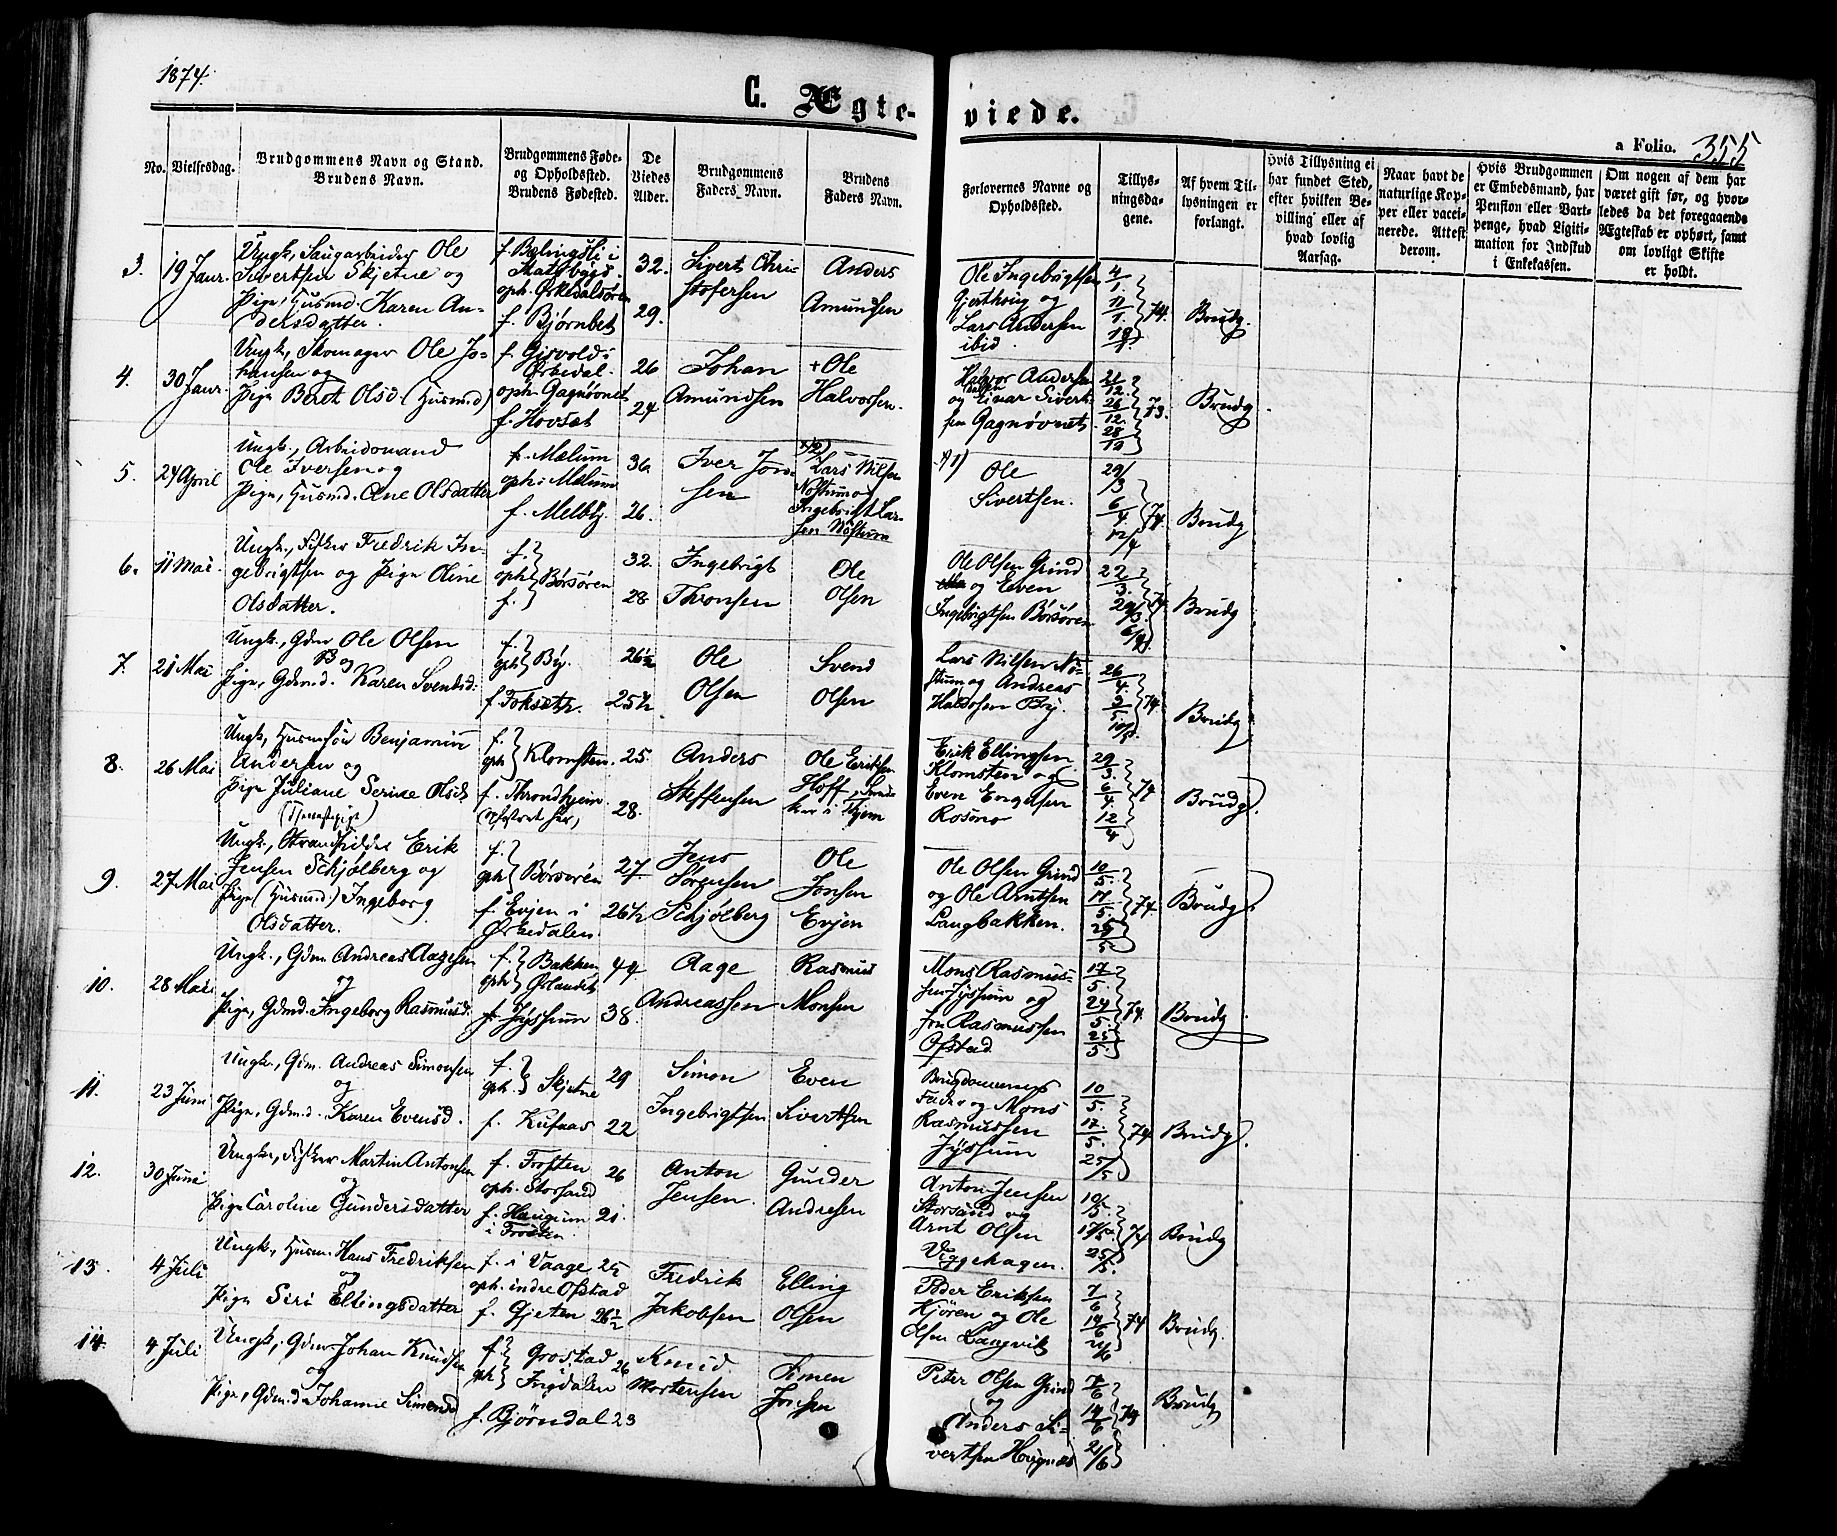 1874.
C. Ægteviede.
a Folio. 355
No.
Vielsesdag.
Brudgommens Navn og Stand.
Brudens Navn.
Brudgommens Føde-
og Opholdssted.
Brudens Fødested.
De
Viedes
Alder.
Brudgommens
Faders Navn.
Brudens
Faders Navn.
Forlovernes Navne og
Opholdssted.
Tillys-
ningsda-
gene.
Af hvem Til-
lysningen er
forlangt.
Hvis Tillysning ei
har fundet Sted,
efter hvilken Be-
villing eller af
hvad lovlig
Aarsag.
Naar havt de
naturlige Kop-
per eller vacci-
nerede. Attest
derom.
Hvis Brudgommen
er Embedsmand, har
Pension eller Vart-
penge, hvad Ligiti-
mation for Indskud
i Enkekassen.
Om nogen af dem har
været gift før, og hvor-
ledes da det foregaaende
Ægteskab er ophørt, samt
om lovligt Skifte
er holdt.
3. 19 Janr.
Ungk., Saugarbeider Ole
Sivertsen Skjetne og
Pige, Husmd. Karen An-
dersdatter.
f. Bælingsli i
oph. Orkedalsøren
f. Bjørnbet
32.
29.
Sivert Chri-
stofersen
Anders
Amundsen
Ole Ingebrigtsen
og
Lars Andersen
ibid.
4/1. 11/1. 18/1. 74.
Brudg.
4. 30 Janr.
Ungk., Skomager Ole Jo-
hansen og
Pige Beret Olsd (Husmd)
f. Gjsvold i
Orkedal.
oph. Gagnøvnet
f. Hovset
26
24
Johan
Amundsen
+ Ole
Halvorsen.
Halvor Andersen
og Einar Sivert-
sen Gagnøvnet
21/12. 26/12. 28/12 73.
Brudg
5. 24 April
Ungk., Arbeidsmand
Ole Iversen og
Pige, Husmd. Ane Olsdatter
f. Mælum
oph. i Mælum
f. Melby
36.
26.
Iver Jon-
sen
Lars Nilsen
Nøstum og
Ingebrigt Lar-
sen Nøstum
Ole
Sivertsen.
29/3 6/4. 12/4 74.
Brudg
6. 11 Mai.
Ungk., Fisker Fredrik In-
gebrigtsen og Pige Oline
Olsdatter.
f.
oph. Børsøren
f.
32.
28
Ingebrigt
Thronsen
Ole
Olsen
Ole Olsen Grind
og Even
Ingebrigtsen Børsøren
22/3. 29/3. 6/4. 74.
Brudg
7. 21 Mai
Ungk., Gdm Ole Olsen
By og
Pige, Gdmd. Karen Svendsd.
f.
oph. By.
f. Foksæth.
26½
25½
Ole
Olsen
Svend
Olsen
Lars Nilsen Nø-
stum og Andreas
Haldosen By.
26/4. 3/5. 10/5. 74
Brudg
8. 26 Mai
Ungk., Husmsøn Benjamin
Andersen og
Pige Juliane Serine Olsd.
(Tjenestepige)
f.
oph. Klomsten.
f. Throndhjem
(opfostret her)
25.
28.
Anders
Steffensen
Ole Eriksen
Hoff, Sned-
ker i Thjem
Erik Ellingsen
Klomsten og
Even Engelsen
Rosmo
29/3. 6/4. 12/4 74
Brudg.
9. 27 Mai
Ungk., Strandsidder Erik
Jensen Schjølberg og
Pige (Husmd.) Ingeborg
Olsdatter.
f.
oph. Børsøren
f. Evjen i
Orkedalen.
27.
26½
Jens
Sørensen
Schjølberg
Ole
Jonsen
Evjen
Ole Olsen Grind
og Ole Arntsen
Langbakken.
10/5. 17/5. 25/5 74.
Brudg.
10. 28 Mai
Ungk., Gdm. Andreas Aagesen
og
Pige, Gdmd. Ingeborg Rasmusd.
f. Bakken
oph. Øslandet
f. Jyssum
44
38.
Aage
Andreassen
Rasmus
Monsen
Mons Rasmus-
sen Jyssum og
Jon Rasmussen
Ofstad
17/5. 24/5. 25/5. 74.
Brudg.
11. 23 Juni
Ungk., Gdm. Andreas Simonsen
og
Pige, Gdmd. Karen Evensd.
f.
oph. Skjetne
f. Kufaas
29
22
Simon
Ingebrigtsen
Even
Sivertsen
Brudgommens
Fader og Mons
Rasmussen
Jyssum
10/5. 17/5. 25/5 74
Brudg.
12. 30 Juni
Ungk., Fisker Martin Antonsen
og
Pige Caroline Gundersdatter
f. Frosten
oph. Storsand
f. Haugum
i Frosten.
26
21.
Anton
Jensen.
Gunder
Andresen
Anton Jensen
Storsand og
Arnt Olsen
Viggehagen.
10/5. 17/5. 25/5. 74
Brudg
13. 4 Juli
Ungk., Husm. Hans Fredriksen
og
Pige Siri Ellingsdatter
f. i Vaage
oph. indre Ofstad
f. Gjeten
25
26½
Fredrik
Jakobsen
Elling
Olsen
Peder Eriksen
Kjøren og Ole
Olsen Langvik
7/6 14/6 21/6 74
Brudg.
14. 4 Juli
Ungk., Gdm. Johan Knudsen
og
Pige, Gdmd. Johanne Simensd
f. Grostad
oph. Ingdalen
f. Bjørndal
26
23
Knud
Mortensen
Simen
Jonsen
Peter Olsen Grind
og
Anders Si-
vertsen Høvgnes
7/6 14/6 21/6 74
Brudg